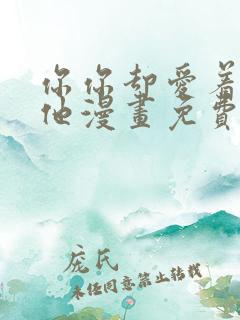 你你却愛着
他漫畫免費
庞氏
未经同意禁止转载